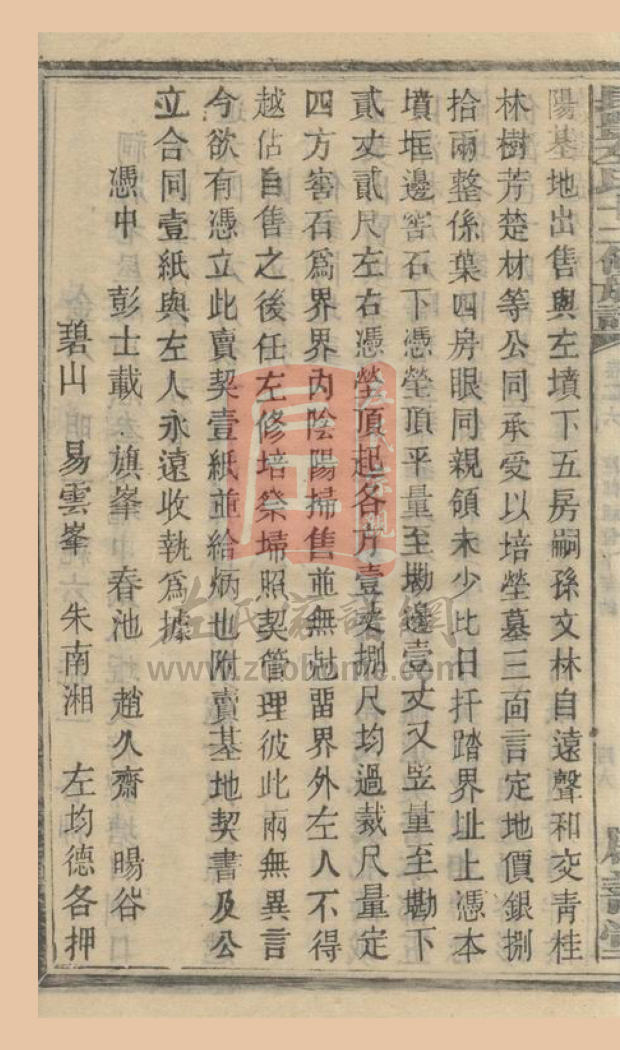 陽基地出售與左墳下五房嗣孫文林自遠聲和交青桂
林樹芳楚材等公同承受以培塋墓三面言定地價銀捌
拾兩整係葉四房眼同親領未少比日扦踏界址上憑本
墳框邊窖石下憑塋頂平量至磡邊壹丈又竖量至磡下
貳丈貳尺左右憑塋頂起各方壹丈捌尺均過裁尺量定
四方窖石爲界界內陰陽掃售並無尅畱界外左人不得
越佔自售之後任左修培祭掃照契管理彼此兩無異言
今欲有憑立此賣契壹紙並給炳也附賣基地契書及公
立合同壹紙與左人永遠收執爲據
憑中 彭士載 旗峯 春池 趙久齋 暘谷
碧山 易雲峯 朱南湘 左均德各押
左氏家譜網
www.zuobunic.com